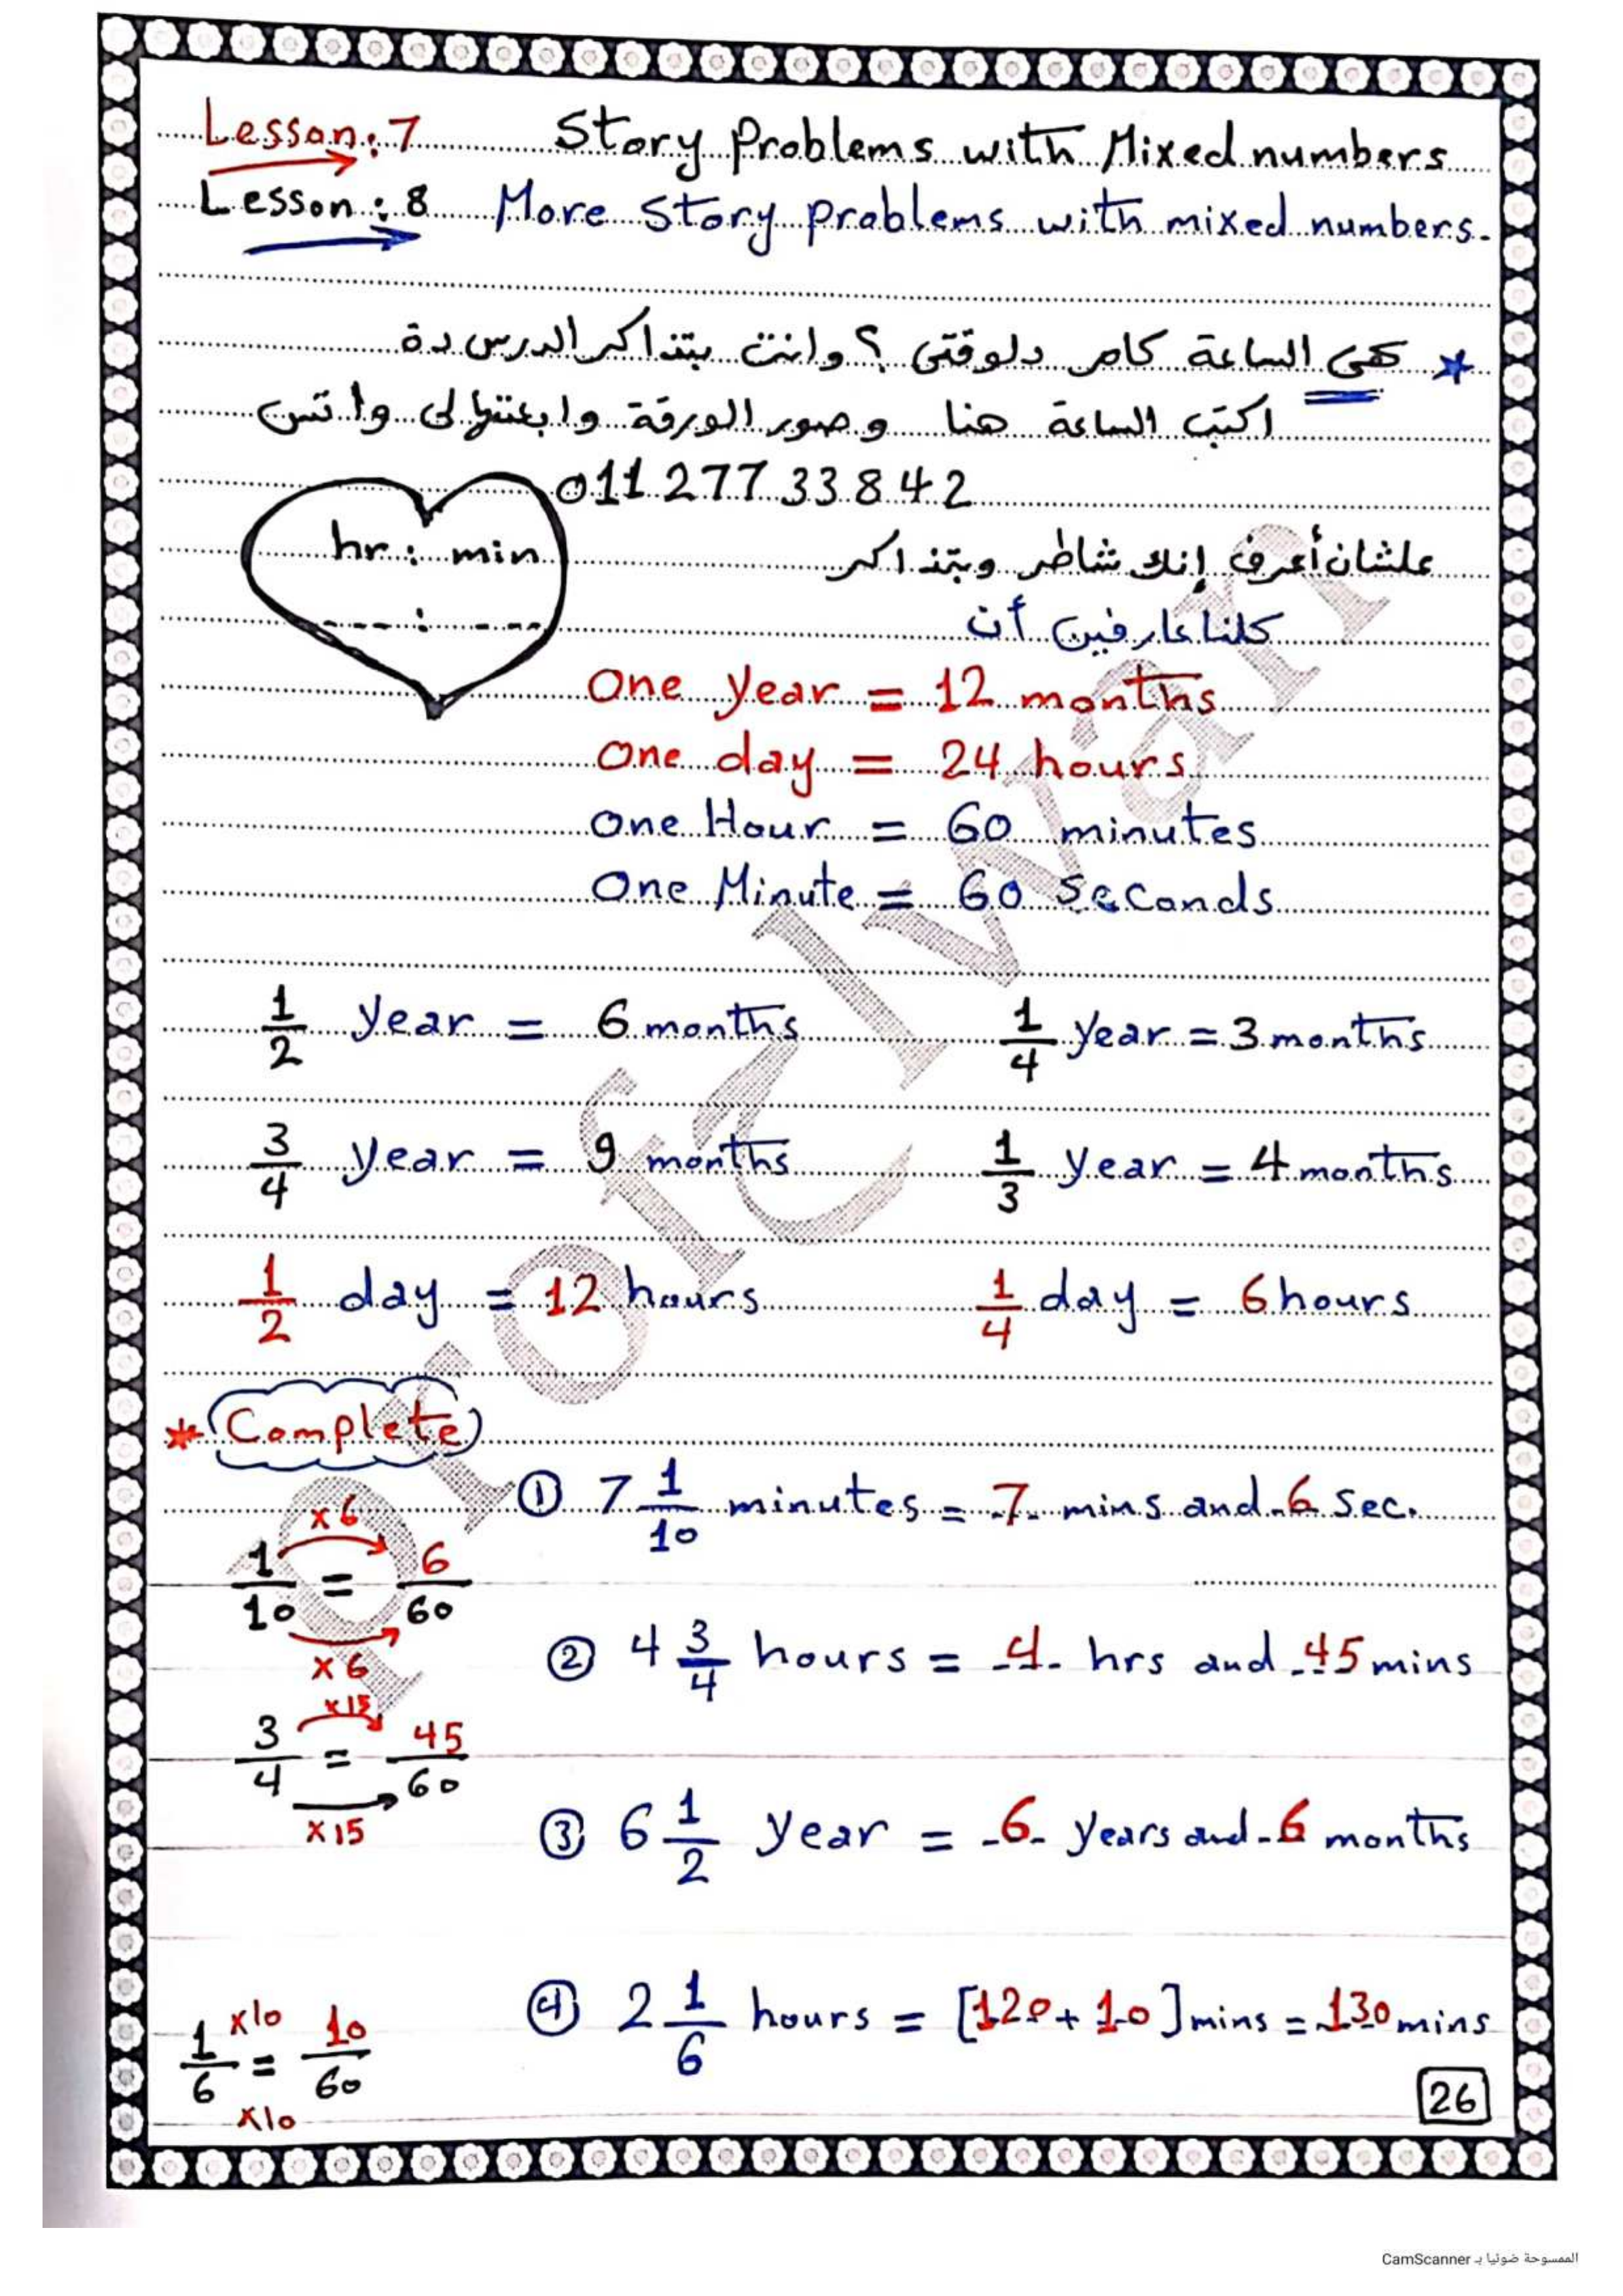 Lesson: 7 Story Problems with Mixed numbers
Lesson: 8 More Story problems with mixed numbers.
* هى الساعة كام دلوقتى ؟ وانت بتذاكر الدرس دة
اكتب الساعة هنا وصور الورقة وابعتهالى واتس
01127733842
hr : min
علشان أعرف إنك شاطر وبتذاكر
كلنا عارفين أن
One year = 12 months
One day = 24 hours
One Hour = 60 minutes
One Minute = 60 Seconds
1/2 year = 6 months 1/4 year = 3 months
3/4 year = 9 months 1/3 year = 4 months
1/2 day = 12 hours 1/4 day = 6 hours
* Complete
① 7 1/10 minutes = 7 mins and 6 sec.
1/10 = 6/60
×6
×6
② 4 3/4 hours = 4 hrs and 45 mins
3/4 = 45/60
×15
×15
③ 6 1/2 year = 6 years and 6 months
④ 2 1/6 hours = [120 + 10] mins = 130 mins
1/6 = 10/60
×10
×10
26
الممسوحة ضوئيا بـ CamScanner